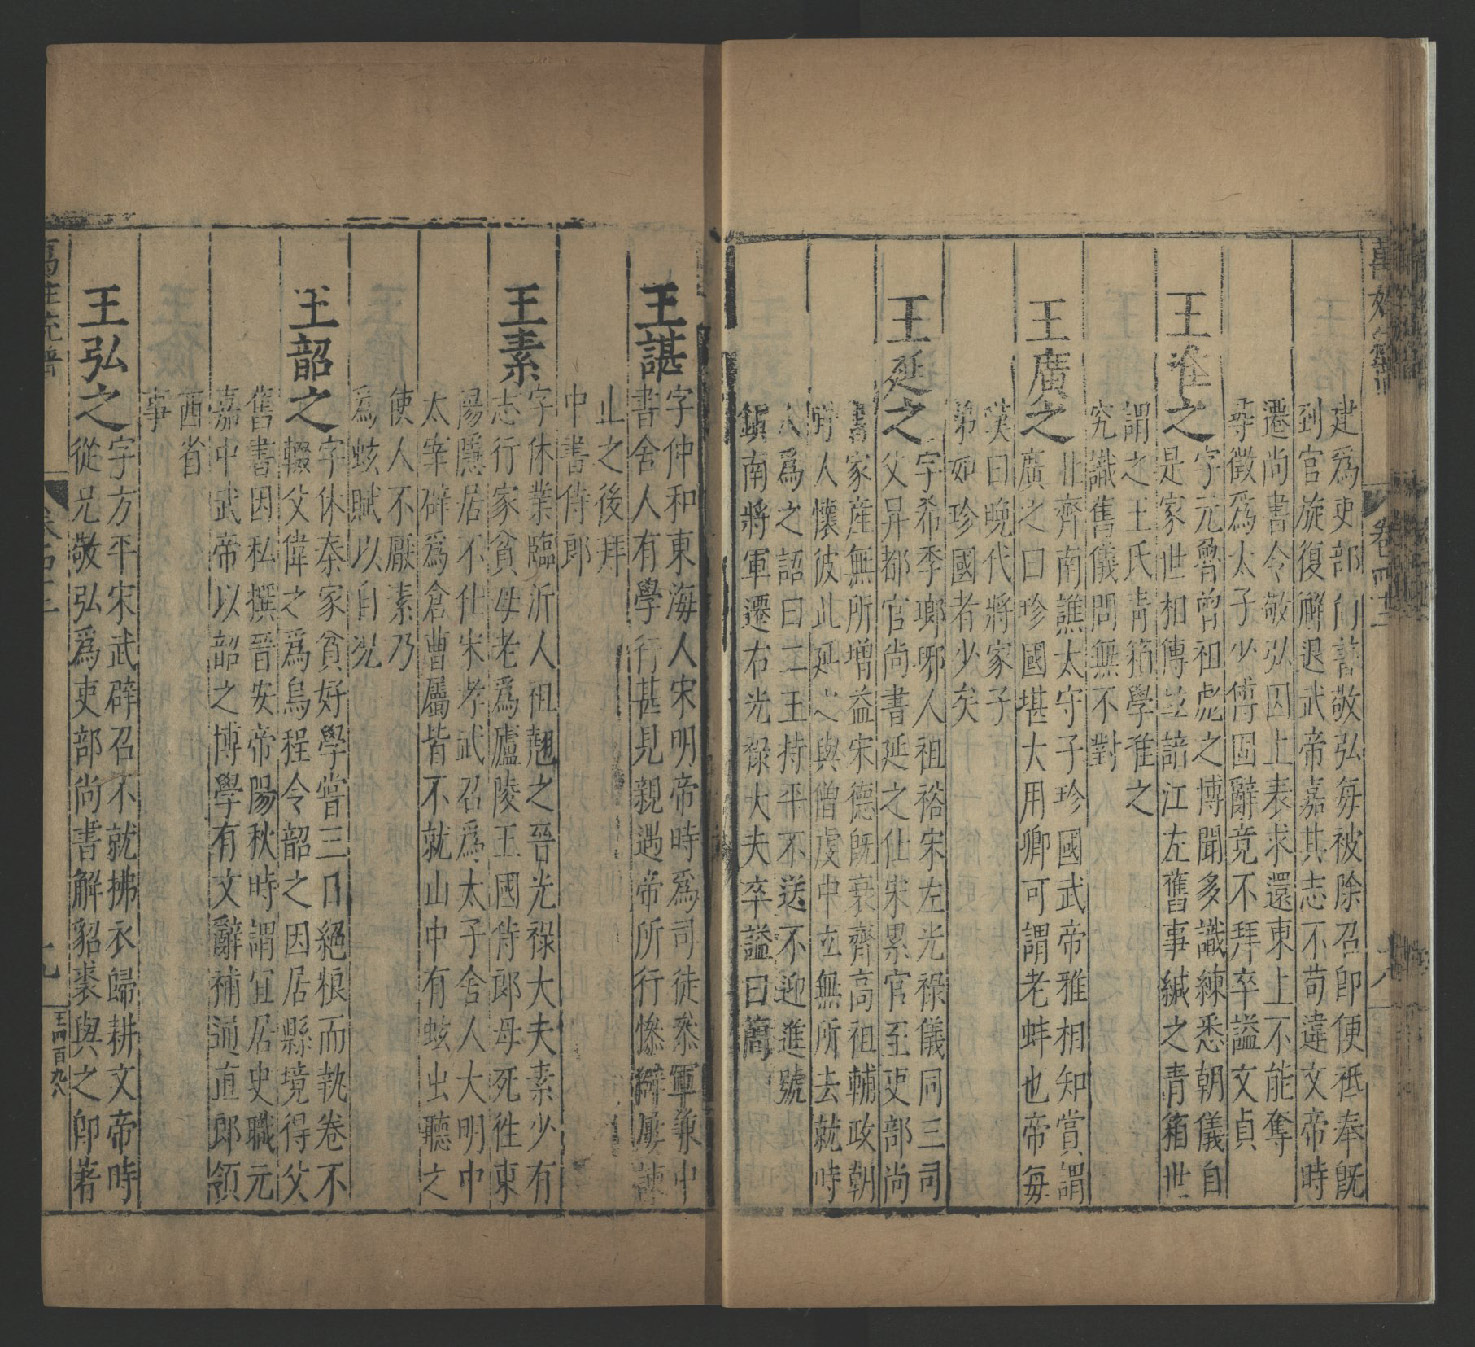 建爲吏部尚書敬弘每被除召即便祇奉既
到官旋復解退武帝嘉其志不苟違文帝時
遷尚書令敬弘因上表求還東上不能奪
尋徵爲太子少傅固辭竟不拜卒謚文貞
王淮之字元魯曾祖彪之博聞多識練悉朝儀自
是家世相傳並諳江左舊事緘之青箱世
謂之王氏青箱學淮之
究識舊儀問無不對
王廣之北齊南譙太守子珍國武帝雅相知賞謂
廣之曰珍國堪大用卿可謂老蚌也帝每
嘆曰晚代將家子
弟如珍國者少矣
王延之字希季瑯琊人祖裕宋左光祿儀同三司
父昇都官尚書延之仕宋累官至吏部尚
書家產無所增益宋德既衰齊高祖輔政朝
野人懷彼此延之與僧虔中立無所去就時
人爲之詔曰二王持平不送不迎進號
鎮南將軍遷右光祿大夫卒謚曰簡
王諶字仲和東海人宋明帝時爲司徒參軍兼中
書舍人有學行甚見親遇帝所行慘僻屢諫
止之後拜
中書侍郎
王素字休業臨沂人祖翹之晉光祿大夫素少有
志行家貧母老爲廬陵王國侍郎母死徃東
陽隱居不仕宋孝武召爲太子舍人大明中
太宰辟爲倉曹屬皆不就山中有蚿出聽之
使人不厭素乃
爲蚿賦以自況
王韶之字休泰家貧好學嘗三日絕粮而執卷不
輟父偉之爲烏程令韶之因居縣境得父
舊書因私撰晉安帝陽秋時謂宜居史職元
嘉中武帝以韶之博學有文辭補通直郎領
西省
事
王弘之字方平宋武辟召不就拂衣歸耕文帝時
從兄敬弘爲吏部尚書解貂裘與之即著
萬姓統譜